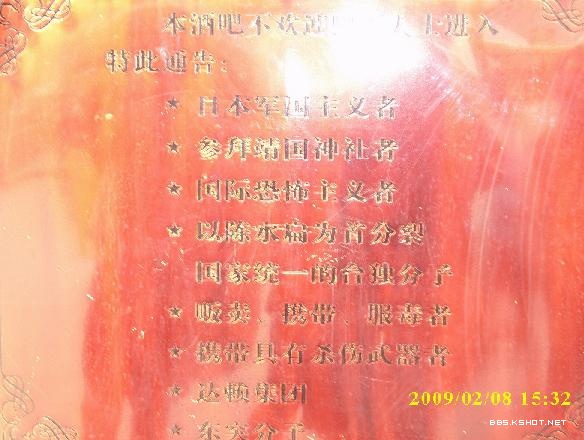 本酒吧不欢迎 人士进入
特此通告：
★ 日本军国主义者
★ 参拜靖国神社者
★ 国际恐怖主义者
★ 以陈水扁为首分裂
国家统一的台独分子
★ 贩卖、携带、服毒者
★ 携带具有杀伤武器者
★ 达赖集团
★ 东突分子
2009/02/08 15:32
BBS.KSHOT.NET